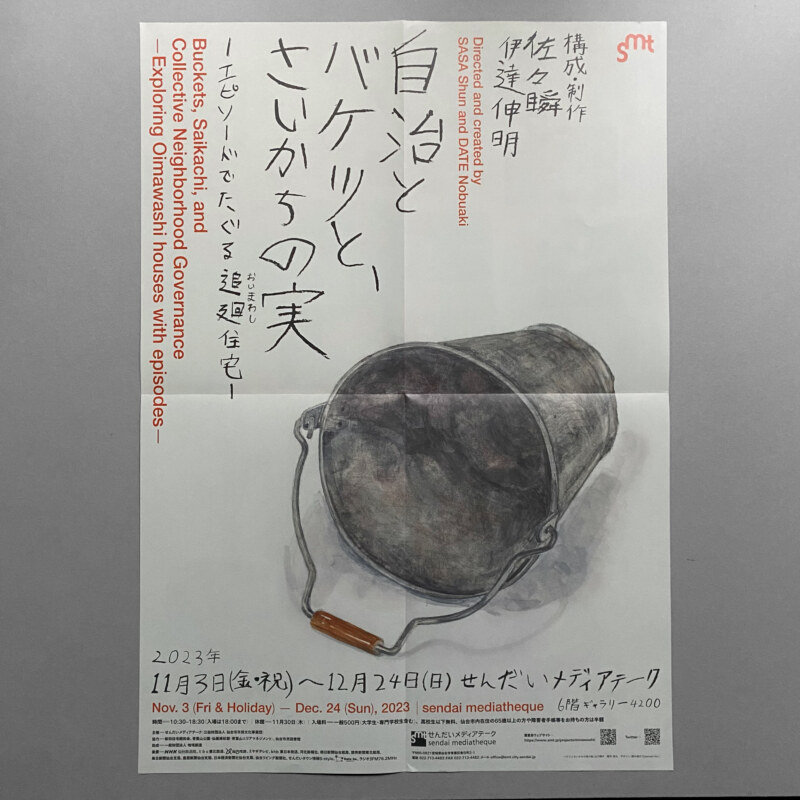 smt
構成・制作
佐々瞬
伊達伸明
Directed and created by
SASA Shun and DATE Nobuaki
自治と
バケツと、
さいかちの実
―エピソードでたぐる追廻住宅―
おいまわし
Buckets, Saikachi, and
Collective Neighborhood Governance
—Exploring Oimawashi houses with episodes—
2023年
11月3日(金・祝)〜12月24日(日)せんだいメディアテーク
6階ギャラリー4200
Nov. 3 (Fri & Holiday) — Dec. 24 (Sun), 2023 | sendai mediatheque
smt
せんだいメディアテーク
sendai mediatheque